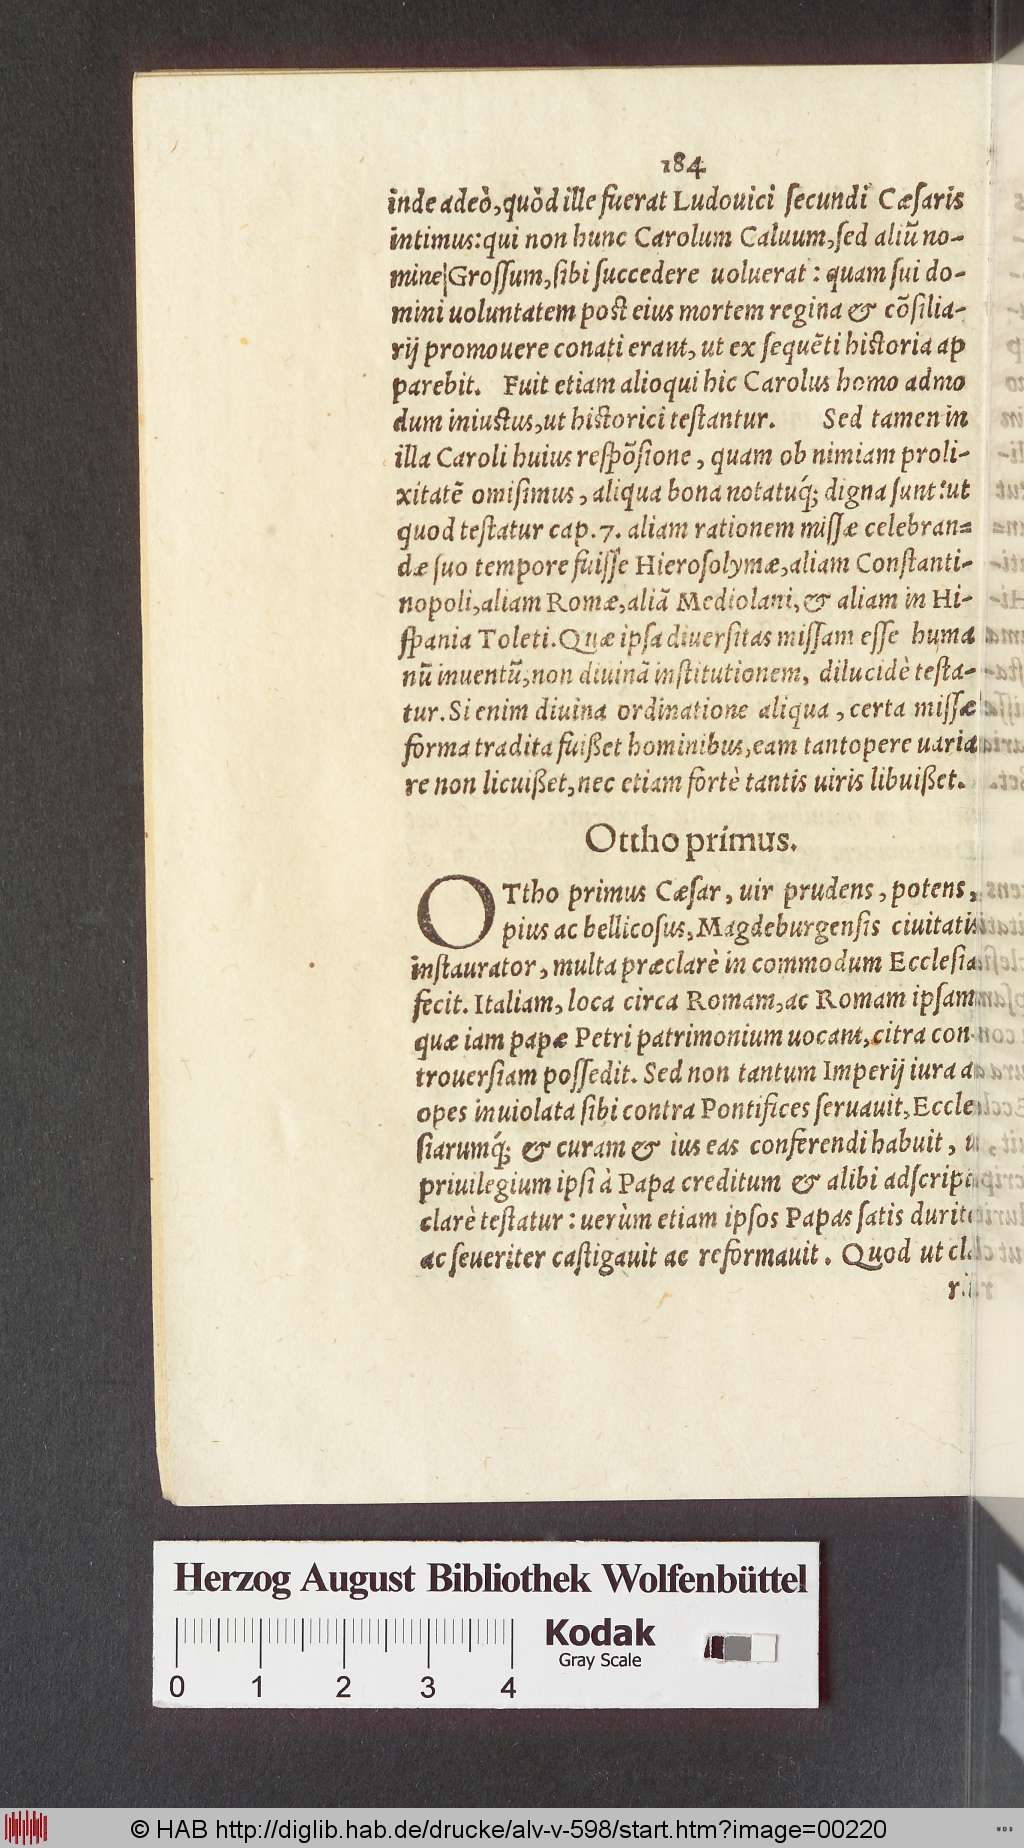 184
inde adeò, quòd ille fuerat Ludouici ſecundi Cæſaris
intimus: qui non hunc Carolum Caluum, ſed aliũ no-
mine Groſſum, ſibi ſuccedere uoluerat : quam ſui do-
mini uoluntatem poſt eius mortem regina & cõſilia-
rij promouere conati erant, ut ex ſequẽti hiſtoria ap
parebit. Fuit etiam alioqui hic Carolus homo admo
dum iniuctus, ut hiſtorici teſtantur. Sed tamen in
illa Caroli huius reſpõſione, quam ob nimiam proli-
xitatẽ omiſimus, aliqua bona notatuq́; digna ſunt: ut
quod teſtatur cap. 7. aliam rationem miſſæ celebran=
dæ ſuo tempore fuiſſe Hieroſolymæ, aliam Conſtanti-
nopoli, aliam Romæ, aliã Mediolani, & aliam in Hi-
ſpania Toleti. Quæ ipſa diuerſitas miſſam eſſe huma
nũ inuentũ, non diuinã inſtitutionem, dilucidè teſta-
tur. Si enim diuina ordinatione aliqua, certa miſſæ
forma tradita fuißet hominibus, eam tantopere uaria
re non licuißet, nec etiam fortè tantis uiris libuißet.
Ottho primus.
OTtho primus Cæſar, uir prudens, potens,
pius ac bellicoſus, Magdeburgenſis ciuitatis
inſtaurator, multa præclarè in commodum Eccleſiæ
fecit. Italiam, loca circa Romam, ac Romam ipſam
quæ iam papæ Petri patrimonium uocant, citra con-
trouerſiam poſſedit. Sed non tantum Imperij iura ac
opes inuiolata ſibi contra Pontifices ſeruauit, Eccle
ſiarumq́; & curam & ius eas conferendi habuit,
priuilegium ipſi à Papa creditum & alibi adſcrip
clarè teſtatur : uerùm etiam ipſos Papas ſatis durite
ac ſeueriter caſtigauit ac reformauit. Quod ut cla
Herzog August Bibliothek Wolfenbüttel
0 1 2 3 4
Kodak
Gray Scale
© HAB http://diglib.hab.de/drucke/alv-v-598/start.htm?image=00220